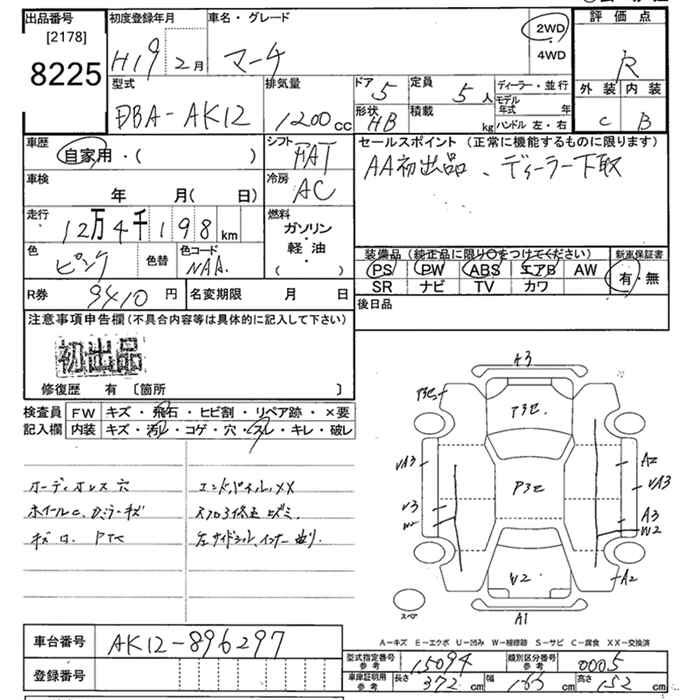 出品番号
[2178]
8225
初度登録年月
H19 2月
車名・グレード
マーチ
2WD
4WD
評価点
R
外装 内装
C B
型式
DBA-AK12
排気量
1200cc
ドア 5
定員 5人
形状 HB
積載 kg
ディーラー・並行
モデル年式 年
ハンドル 左・右
車歴
自家用・( )
シフト
FAT
車検
年 月( 日)
冷房
AC
走行
12万4千198km
燃料
ガソリン・軽油・( )
色
ピンク
色替
色コード
NAA.
セールスポイント(正常に機能するものに限ります)
AA初出品、ディーラー下取
装備品(純正品に限り○をつけてください)
PS PW ABS エアB AW
SR ナビ TV カワ
新車保証書
有・無
R券 9410円
名変期限 月 日
後日品
注意事項申告欄(不具合内容等は具体的に記入して下さい)
初出品
修復歴 有〔箇所 〕
検査員記入欄
FW キズ・飛石・ヒビ割・リペア跡・×要
内装 キズ・汚レ・コゲ・穴・スレ・キレ・破レ
オーディオレス穴
エンドパネルXX
A3
P3セ
P3セ
P3セ
VA3
V3
W2
A2
VA3
A3
W2
V2
A2
A1
スペア
A-キズ E-エクボ U-凹み W-補修跡 S-サビ C-腐食 XX-交換済
車台番号
AK12-896297
登録番号
型式指定番号 参考
15094
類別区分番号 参考
0005
車庫証明用 参考
長さ 372cm
幅 165cm
高さ 152cm